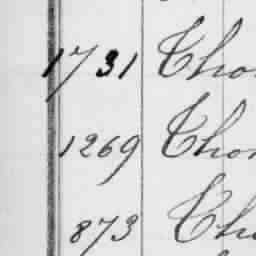 1731 Tho
1269 Tho
873 Th